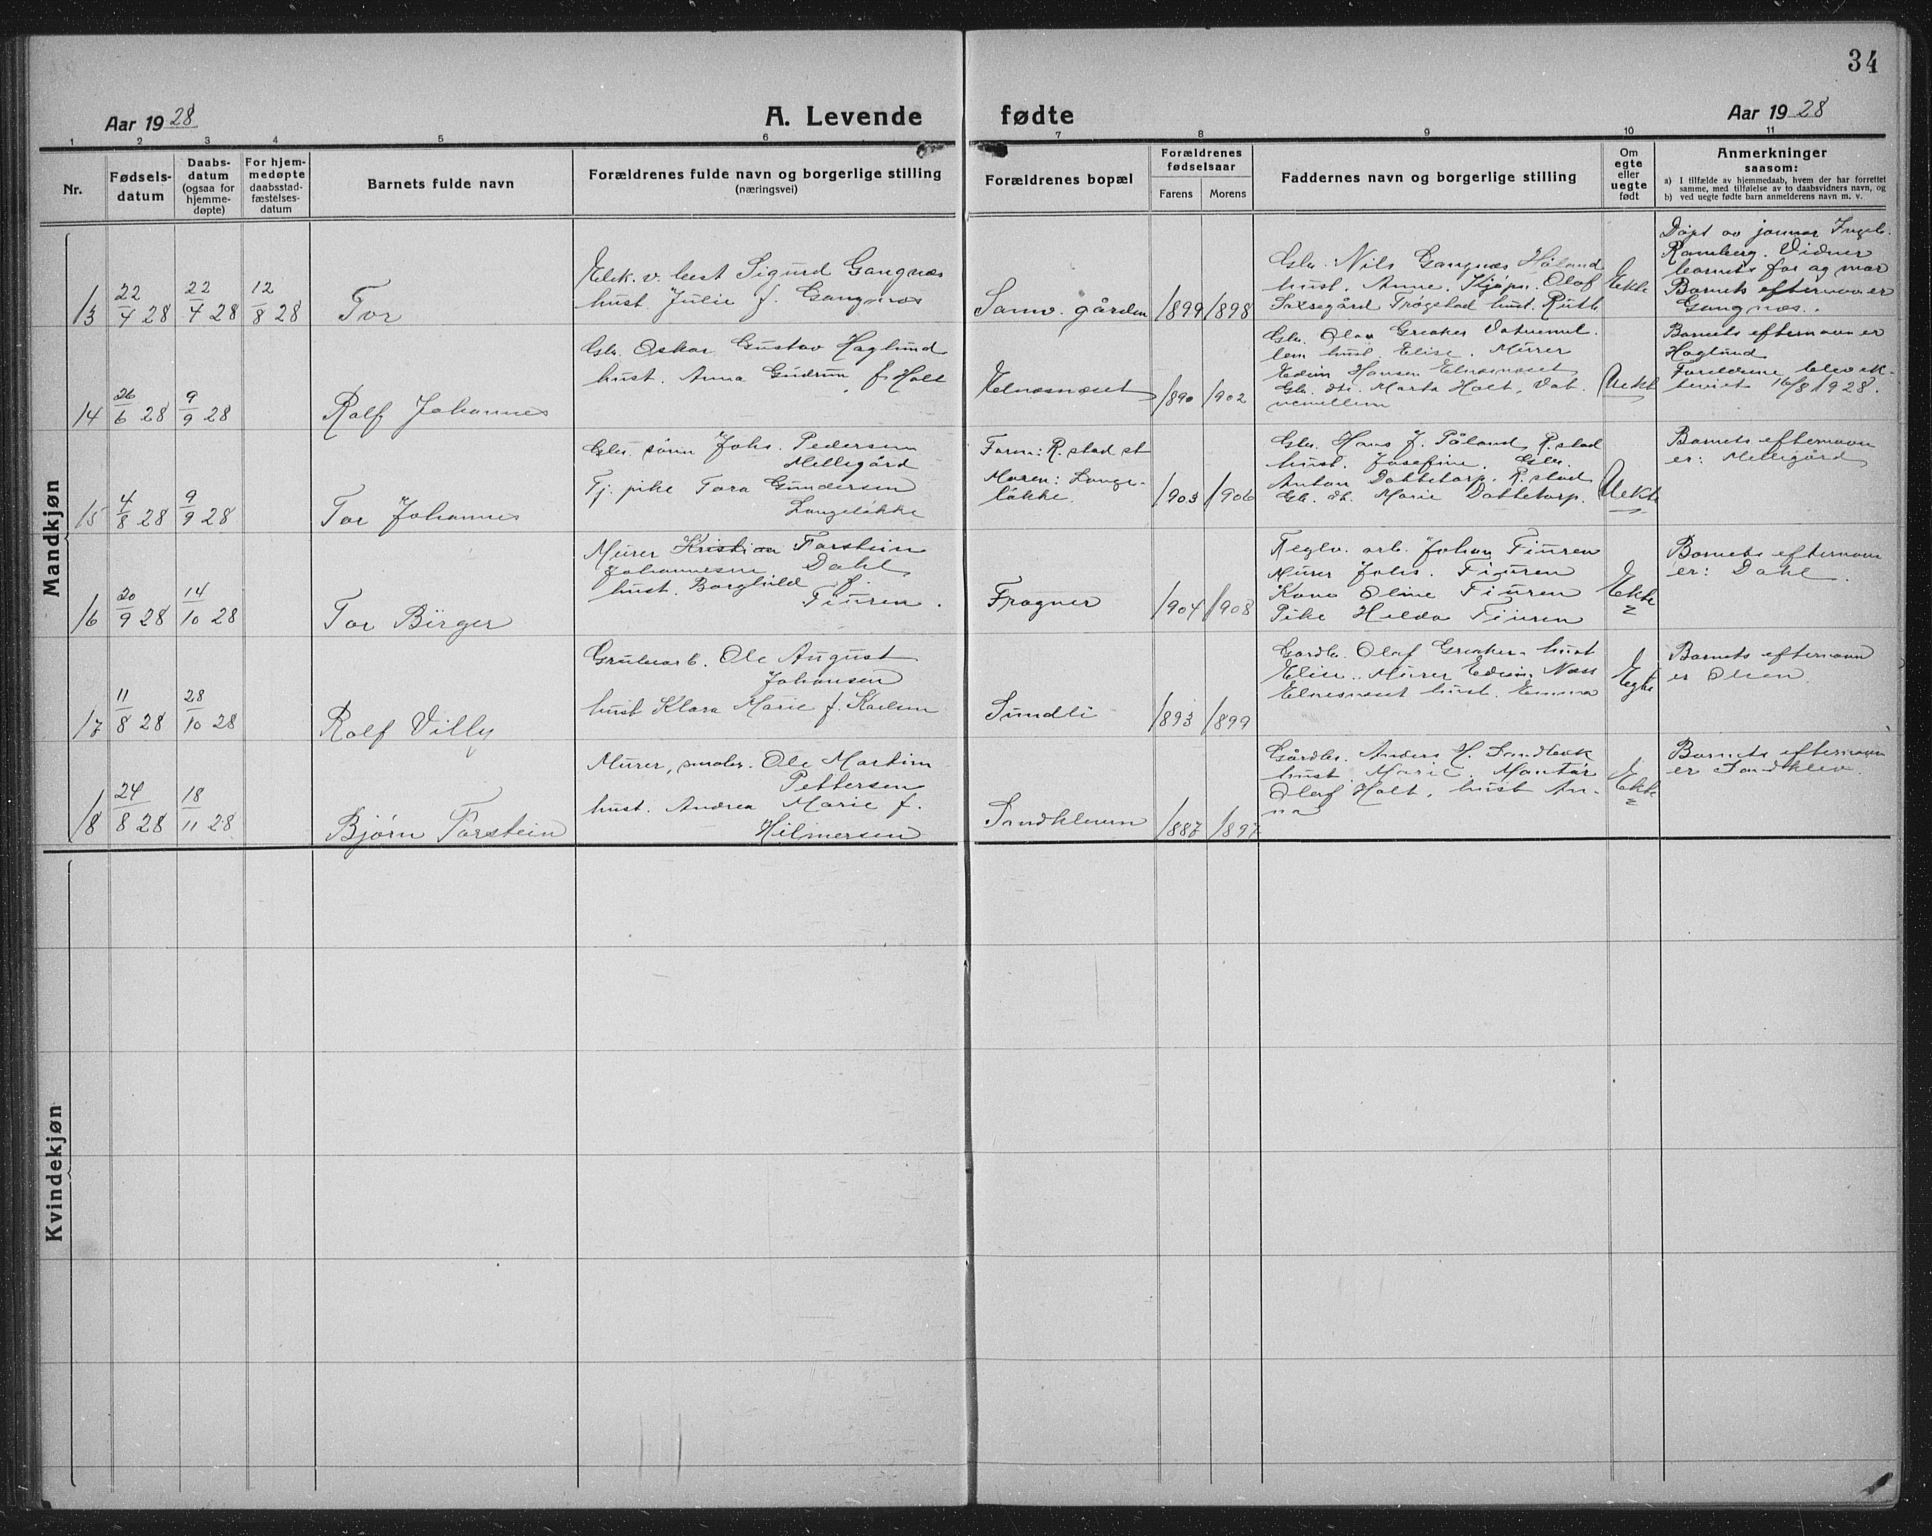 34
Aar 1928
A. Levende fødte
Aar 1928
1 2 3 4 5 6 7 8 9 10 11
Nr.
Fødsels-
datum
Daabs-
datum
(ogsaa for
hjemme-
døpte)
For hjem-
medøpte
daabsstad-
fæstelses-
datum
Barnets fulde navn
Forældrenes fulde navn og borgerlige stilling
(næringsvei)
Forældrenes bopæl
Forældrenes
fødselsaar
Farens Morens
Faddernes navn og borgerlige stilling
Om
egte
eller
uegte
født
Anmerkninger
saasom:
a) I tilfælde av hjemmedaab, hvem der har forrettet
samme, med tilføielse av to daabsvidners navn, og
b) ved uegte fødte barn anmelderens navn m. v.
Mandkjøn
13
22/4 28
22/4 28
12/8 28
Tor
Elek. v. best Sigurd Gangnæs
hust Julie f. Gangnæs
Samv. gården
1899 1898
Gbr. Nils Gangnæs Høland
hust. Anne. Kjøpm. Olof
Salsegård Trøgstad hust. Ruth
Ekte
Døpt av jormor Ingeb.
Ramberg. Vidner
barnets far og mor
Barnets efternavn er
Gangnæs.
14
26/6 28
9/9 28
Rolf Johannes
Gbr. Oskar Gustav Haglund
hust. Anna Gudrun f. Holt
Elnesnæset
1890 1902
Gbr. Olav Greaker Vatnemel-
lem hust. Elise. Murer
Edvin Hansen Elnesnæset
Gb. dtr. Marta Holt, Vat-
nemellem
Uekt
Barnets efternavn er
Haglund
Foreldrene blev ek-
teviet 16/8 1928.
15
4/8 28
9/9 28
Tor Johannes
Gbr. sønn Johs. Pedersen
Mellegård
Tj. pike Tora Gundersen
Langeløkke
Faren: R.stad st
Moren: Lange-
løkke.
1903 1906
Gbr. Hans J. Påland, R.stad
hust. Josefine. Gbr.
Anton Dattetorp, R.stad
Gb. dt. Marie Dattetorp.
Uekte
Barnets efternavn
er: Mellegård
16
20/9 28
14/10 28
Tor Birger
Murer Kristian Torstein
Johannesen Dahl
hust. Borghild f.
Tiuren.
Frogner
1904 1908
Teglv. arb. Johan Tiuren
Murer Johs. Tiuren
Kone Oline Tiuren
Pike Hilda Tiuren
Ekte
Barnets efternavn
er: Dahl.
17
11/8 28
28/10 28
Rolf Villy
Grubearb. Ole August
Johansen
hust Klara Marie f. Karlsen
Sundli
1893 1899
Gårdbr. Olaf Greaker hust
Elise. Murer Edvin Næss
Elnesnæset hust. Emma
Egte
Barnets efternavn
er Olsen.
18
24/8 28
18/11 28
Bjørn Torstein
Murer, småbr. Ole Martin
Pettersen
hust. Andrea Marie f.
Hilmersen
Sandkleven
1887 1897
Gårdbr. Anders H. Sandbæk
hust. Marie. Montør
Olaf Holt, hust An-
na
Ekte
Barnets efternavn
er Sandklev.
Kvindekjøn